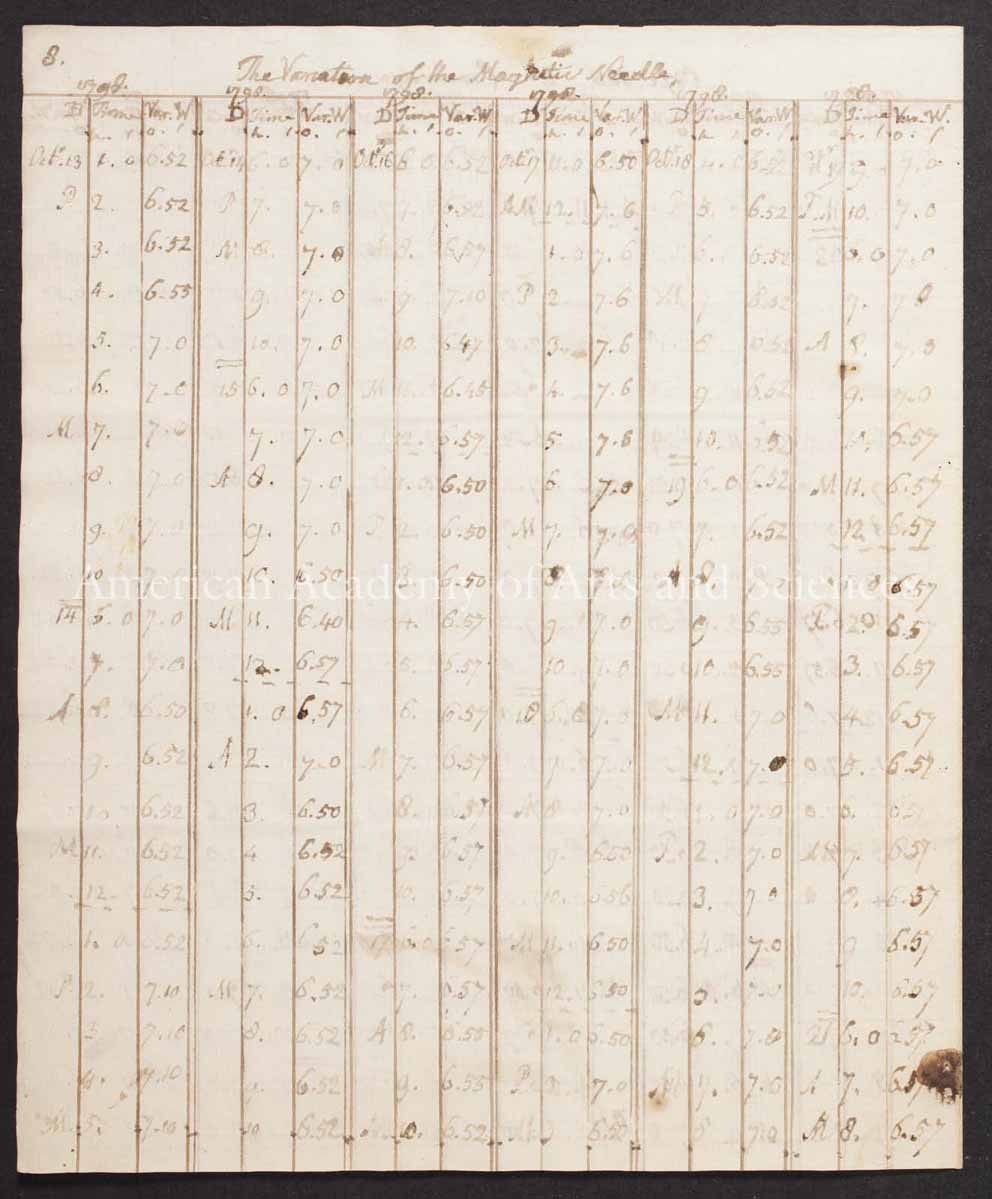 8.
The Variation of the Magnetic Needle,
1798. 1798. 1798. 1798. 1798. 1798.
D Time Var.W D Time Var.W D Time Var.W D Time Var.W D Time Var.W D Time Var.W
h. ' o. ' h. ' o. ' h. ' o. ' h. ' o. ' h. ' o. ' h. ' o. '
Oct. 13 1. 0 6.52 Oct. 14 6. 0 7. 0 Oct. 16 6 0 6.52 Oct. 17 11. 0 6.50 Oct. 18 4. 0 6.52 9 7. 0
P 2. 6.52 P 7. 7. 0 7. 6.52 AM 12. 7. 6 5. 6.52 P.M 10. 7. 0
3. 6.52 M 8. 7. 0 8. 6.57 1. 0 7. 6 6. 6.52 20 6. 0 7. 0
4. 6.55 9. 7. 0 9. 7.10 P 2. 7.6 M 7 6.52 7. 7 0
5. 7.0 10. 7. 0 10. 6.47 3. 7.6 8 6.52 A 8. 7. 0
6. 7.0 15 6. 0 7. 0 M 11. 6.45 4. 7.6 9. 6.52 9. 7.0
M. 7. 7.0 7. 7. 0 12. 6.57 5. 7.6 10. 10. 6.57
8. 7.0 A 8. 7. 0 1. 0 6.50 6. 7.0 19 6. 0 6.52 M 11. 6.57
9. 7.0 9. 7. 0 P. 2. 6.50 M 7. 7.0 7. 6.52 12. 6.57
10 7. 0 10. 6.50 3. 6.50 8. 7.0 8. 6.57
14 6. 0 7. 0 M 11. 6.40 4. 6.57 9. 7.0 9 6.55 P. 2. 6.57
7. 7.0 12. 6.57 5. 6.57 10. 7.0 10. 6.55 3. 6.57
A 8. 6.50 1. 0 6.57 6. 6.57 18 6. 0 7. 0 M 11. 7. 0 4. 6.57
9. 6.52 A 2. 7.0 M 7. 6.57 7. 7.0 12. 7. 5. 6.57
10 6.52 3. 6.50 8. 6.57 A 8 7. 0 1. 0 7. 0 6.
M 11. 6.52 4 6.52 9. 6.57 9. P. 2. 7.0 M 7. 6.57
12. 6.52 5. 6.52 10. 6.57 10. 6.56 3. 7 0 8. 6.57
1. 0 6.52 6. 6.52 17 6. 0 6.57 M 11. 6.50 4. 7.0 9 6.57
P. 2. 7.10 M 7. 6.52 7. 6.57 12. 6.50 5. 7.0 10. 6.57
3 7.10 8. 6.52 A 8. 6.55 1. 0 6.50 6. 7.0 21 6. 0 6.57
4. 7.10 9. 6.52 9. 6.55 P. 7.0 M 7. 7.0 A 7. 6.57
M. 5. 7.10 10 6.52 10. 6.52 6.50 8 7.0 M 8. 6.57
American Academy of Arts and Sciences